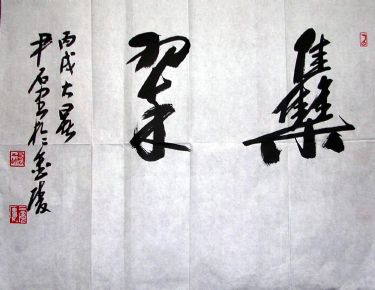 雧翠
丙戌大暑
尹石书於金陵